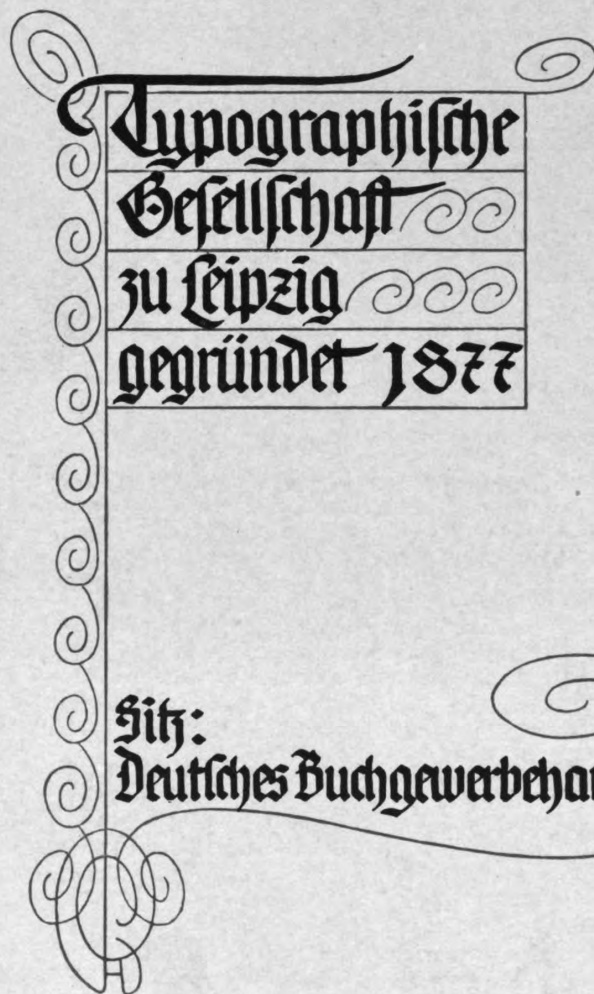 Typographiſche
Geſellſchaft
zu Leipzig
gegründet 1877
Sitz:
Deutſches Buchgewerbehau